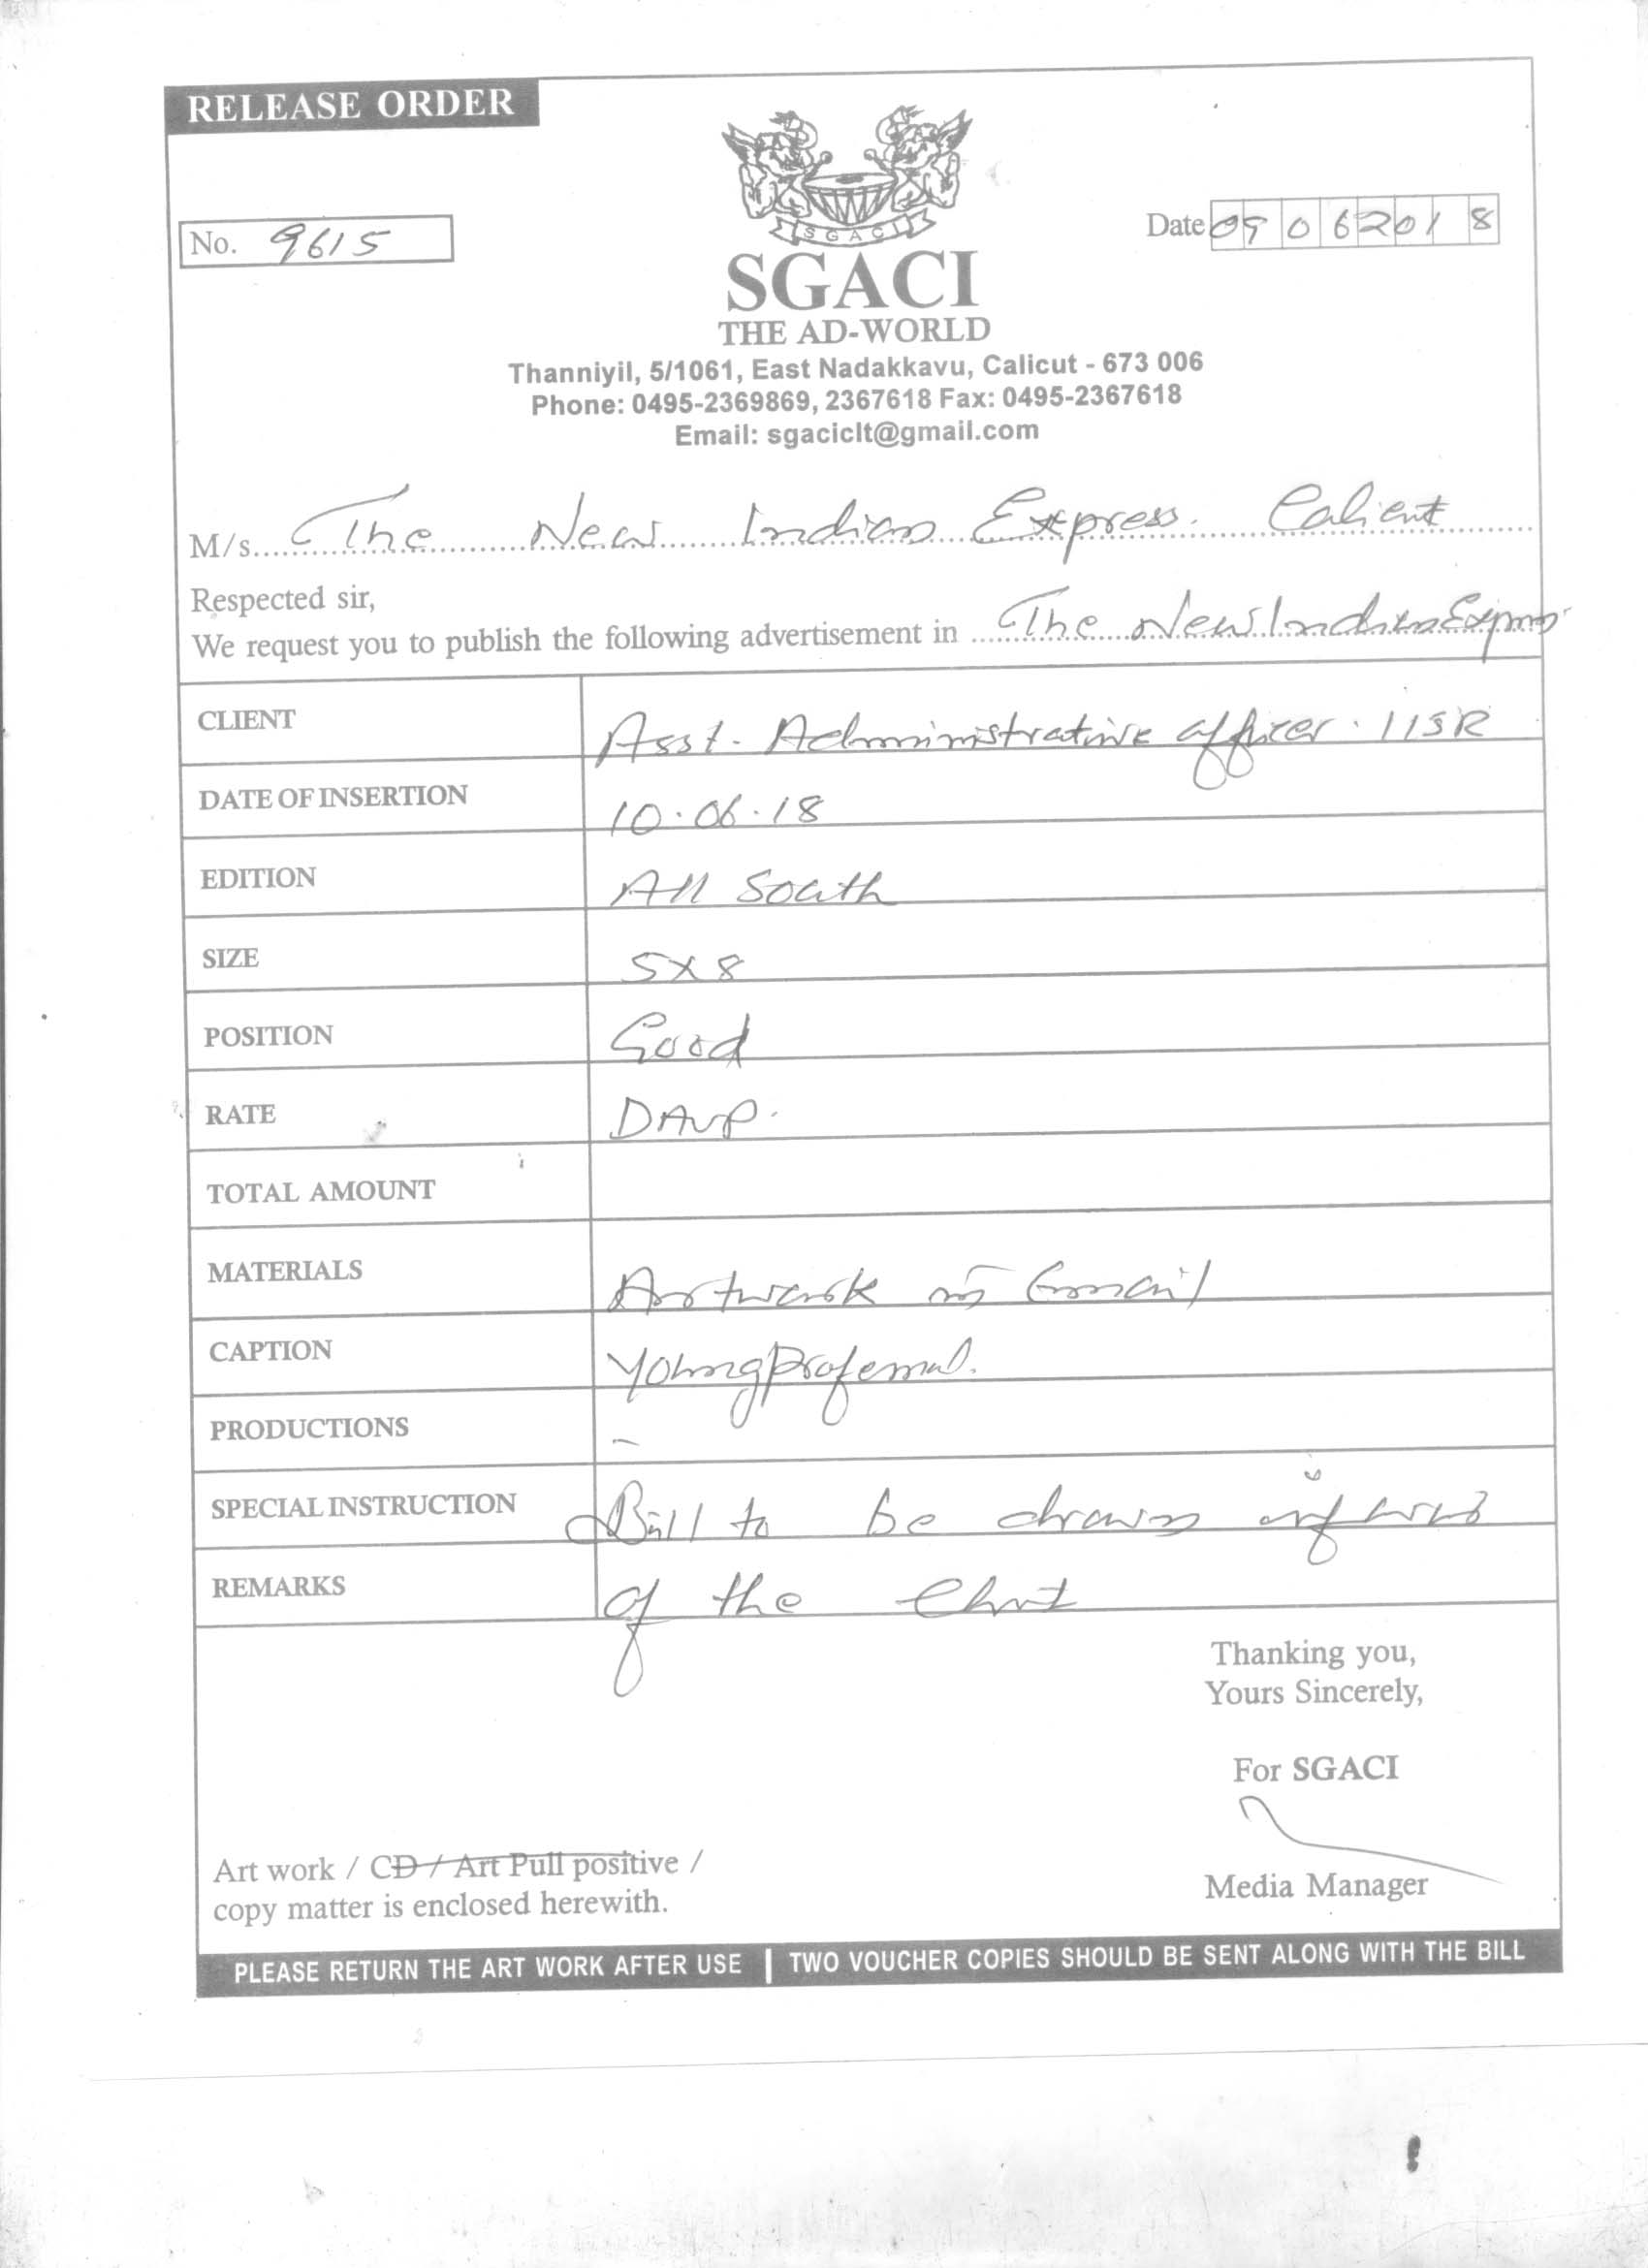 RELEASE ORDER
No. 9615
Date 09 06 2018
SGACI
SGACI
THE AD-WORLD
Thanniyil, 5/1061, East Nadakkavu, Calicut - 673 006
Phone: 0495-2369869, 2367618 Fax: 0495-2367618
Email: sgaciclt@gmail.com
M/s. The New Indian Express. Calicut
Respected sir,
We request you to publish the following advertisement in The New Indian Express
CLIENT Asst. Administrative officer. IISR
DATE OF INSERTION 10.06.18
EDITION All South
SIZE 5x8
POSITION Good
RATE DAVP.
TOTAL AMOUNT
MATERIALS Artwork in Gmail
CAPTION Young Professional.
PRODUCTIONS -
SPECIAL INSTRUCTION Bill to be drawn
REMARKS of the Client
Thanking you,
Yours Sincerely,
For SGACI
Art work / CD / Art Pull positive /
copy matter is enclosed herewith.
Media Manager
PLEASE RETURN THE ART WORK AFTER USE | TWO VOUCHER COPIES SHOULD BE SENT ALONG WITH THE BILL